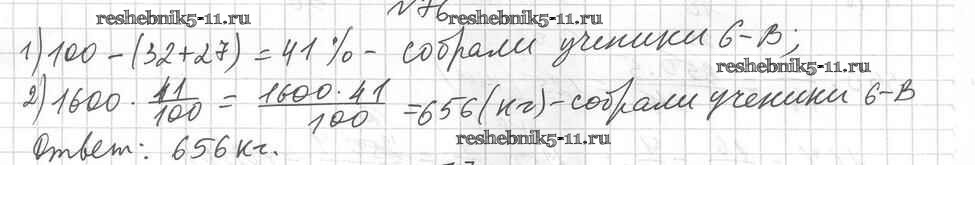 №76
reshebnik5-11.ru
1) 100 - (32+27) = 41% - собрали ученики 6-В;
reshebnik5-11.ru
2) 1600 · 41/100 = 1600·41/100 = 656 (кг) - собрали ученики 6-В
reshebnik5-11.ru
Ответ: 656 кг.